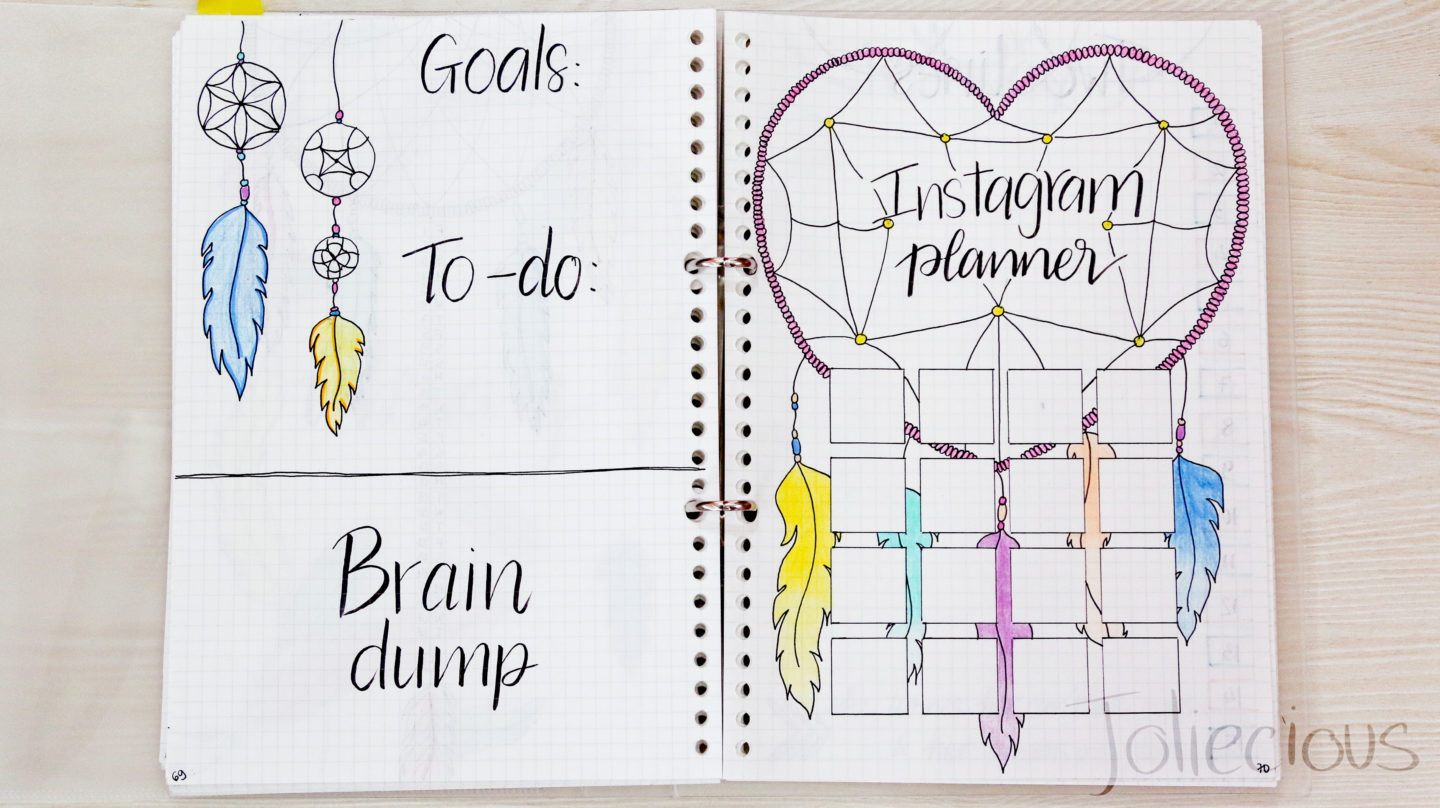 Goals:
To-do:
Brain
dump
69
Instagram
planner
70
Joliecious